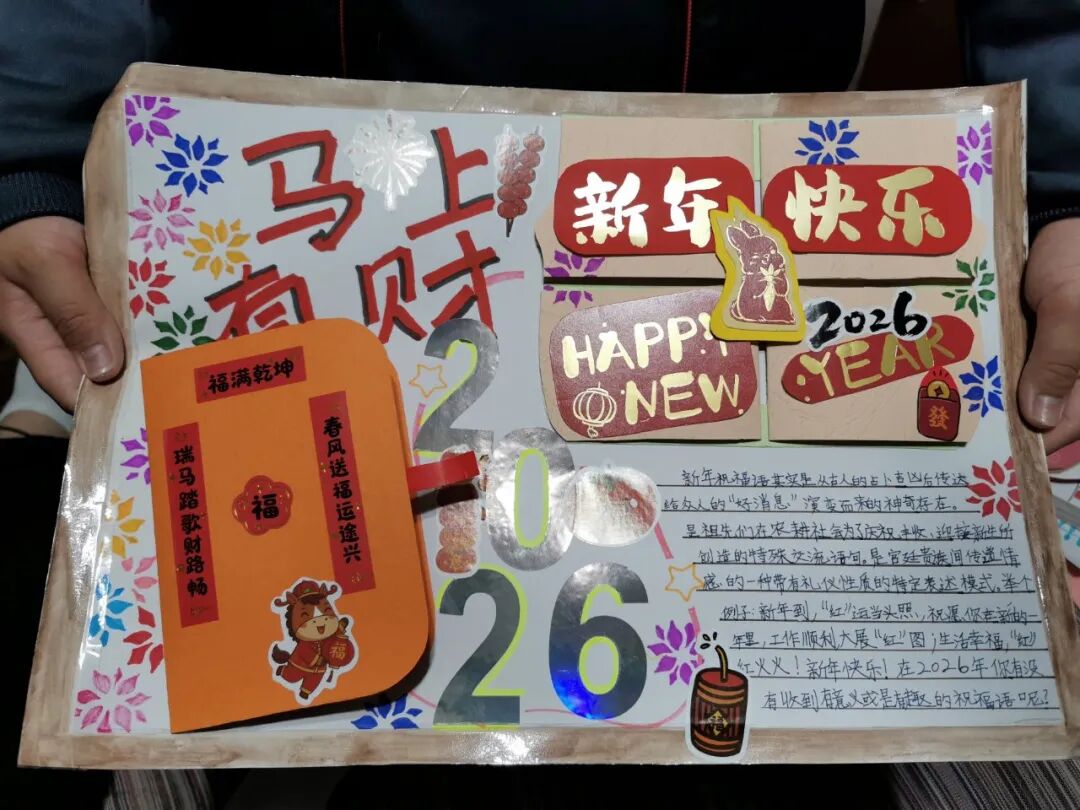 马上
有财
新年快乐
HAPPY
NEW
2026
YEAR
發
福满乾坤
春风送福运途兴
瑞马踏歌财路畅
福
福
2
0
26
新年祝福语其实是从古人的占卜吉凶后传达
给众人的“好消息”演变而来的神奇存在。
是祖先们在农耕社会为了庆祝丰收、迎接新生所
创造的特殊交流语句。是宫廷贵族间传递情
感的一种带有礼仪性质的特定表达模式。举个
例子:新年到,“红”运当头照,祝愿你在新的一
年里,工作顺利大展“红”图;生活幸福,“红”
红火火!新年快乐!在2026年你有没
有收到有意义或是有趣的祝福语呢?